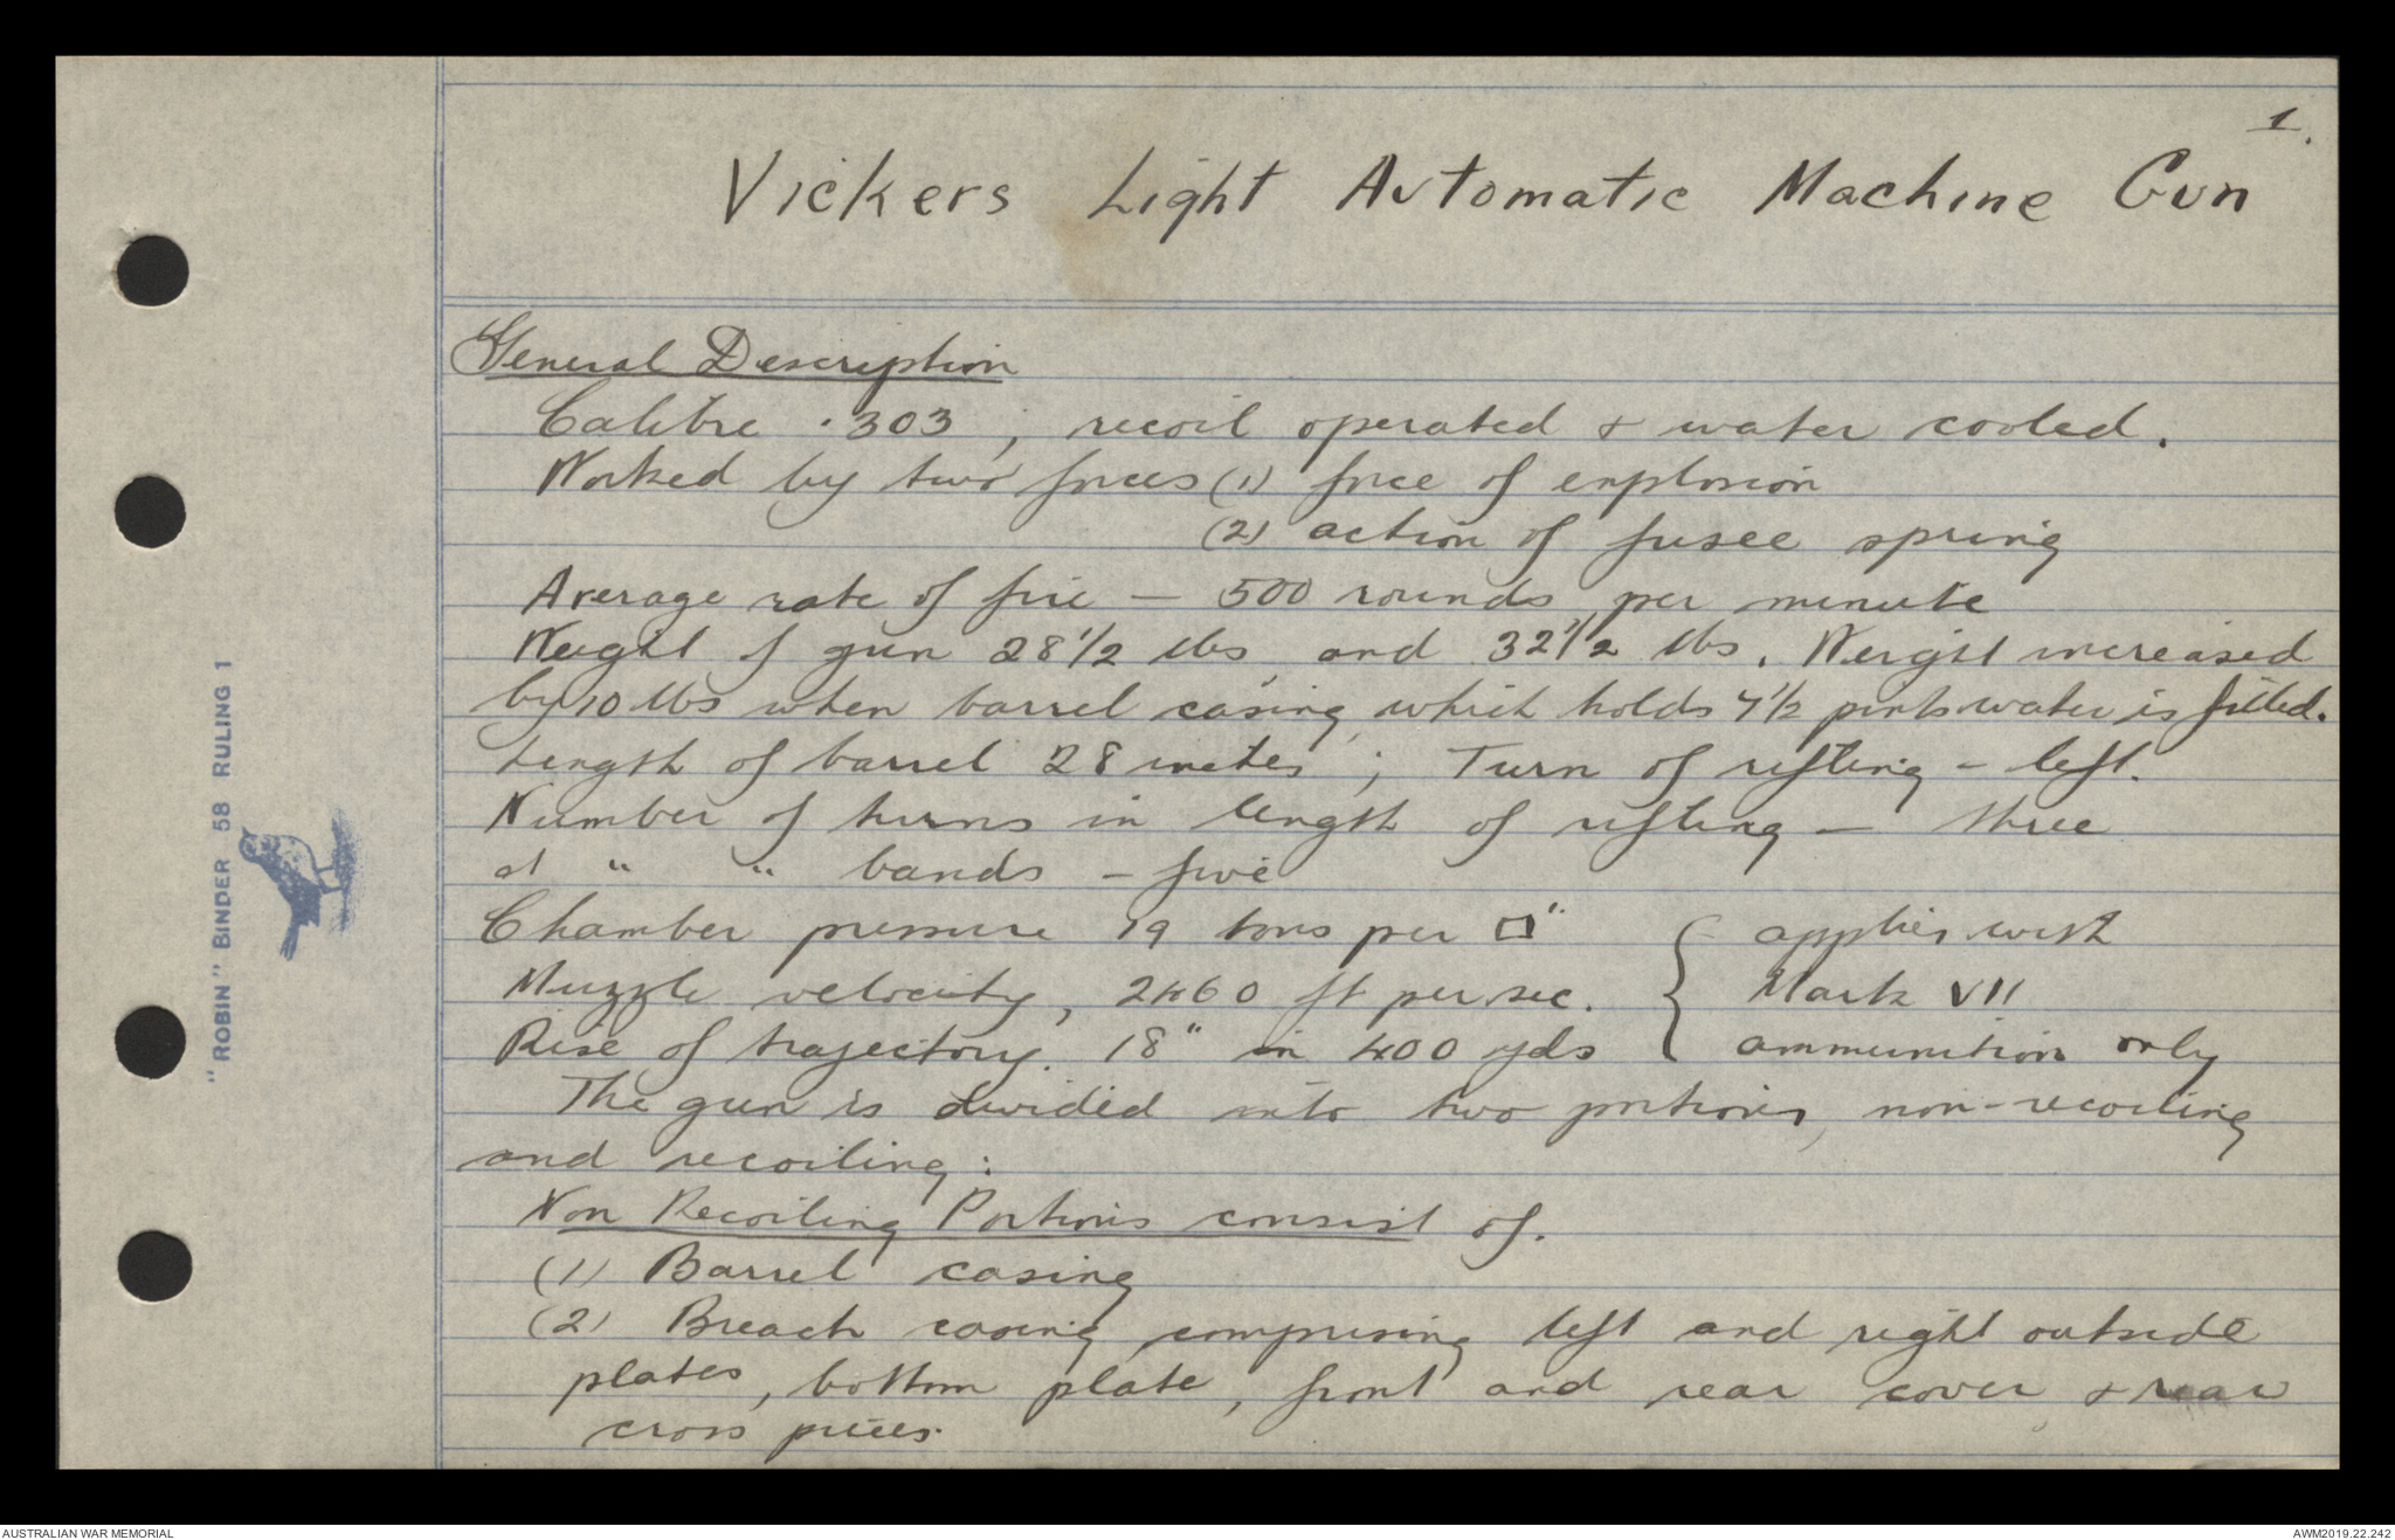 1.
Vickers Light Automatic Machine Gun
General Description
Calibre .303 ; recoil operated & water cooled.
Worked by two forces (1) force of explosion
(2) action of fusee spring
Average rate of fire — 500 rounds per minute
Weight of gun 28 1/2 lbs and 32 1/2 lbs. Weight increased
by 10 lbs when barrel casing, which holds 7 1/2 pints water is filled.
Length of barrel 28 inches ; Turn of rifling - left.
Number of turns in length of rifling — three
" " bands - five
Chamber pressure 19 tons per □" { applies with
Muzzle velocity, 2460 ft per sec. { Mark VII
Rise of trajectory. 18" in 400 yds { ammunition only
The gun is divided into two portions, non-recoiling
and recoiling :
Non Recoiling Portions consist of.
(1) Barrel casing
(2) Breach casing, comprising left and right outside
plates, bottom plate, front and rear cover & rear
cross pieces.
"ROBIN" BINDER 58 RULING 1
AUSTRALIAN WAR MEMORIAL
AWM2019.22.242